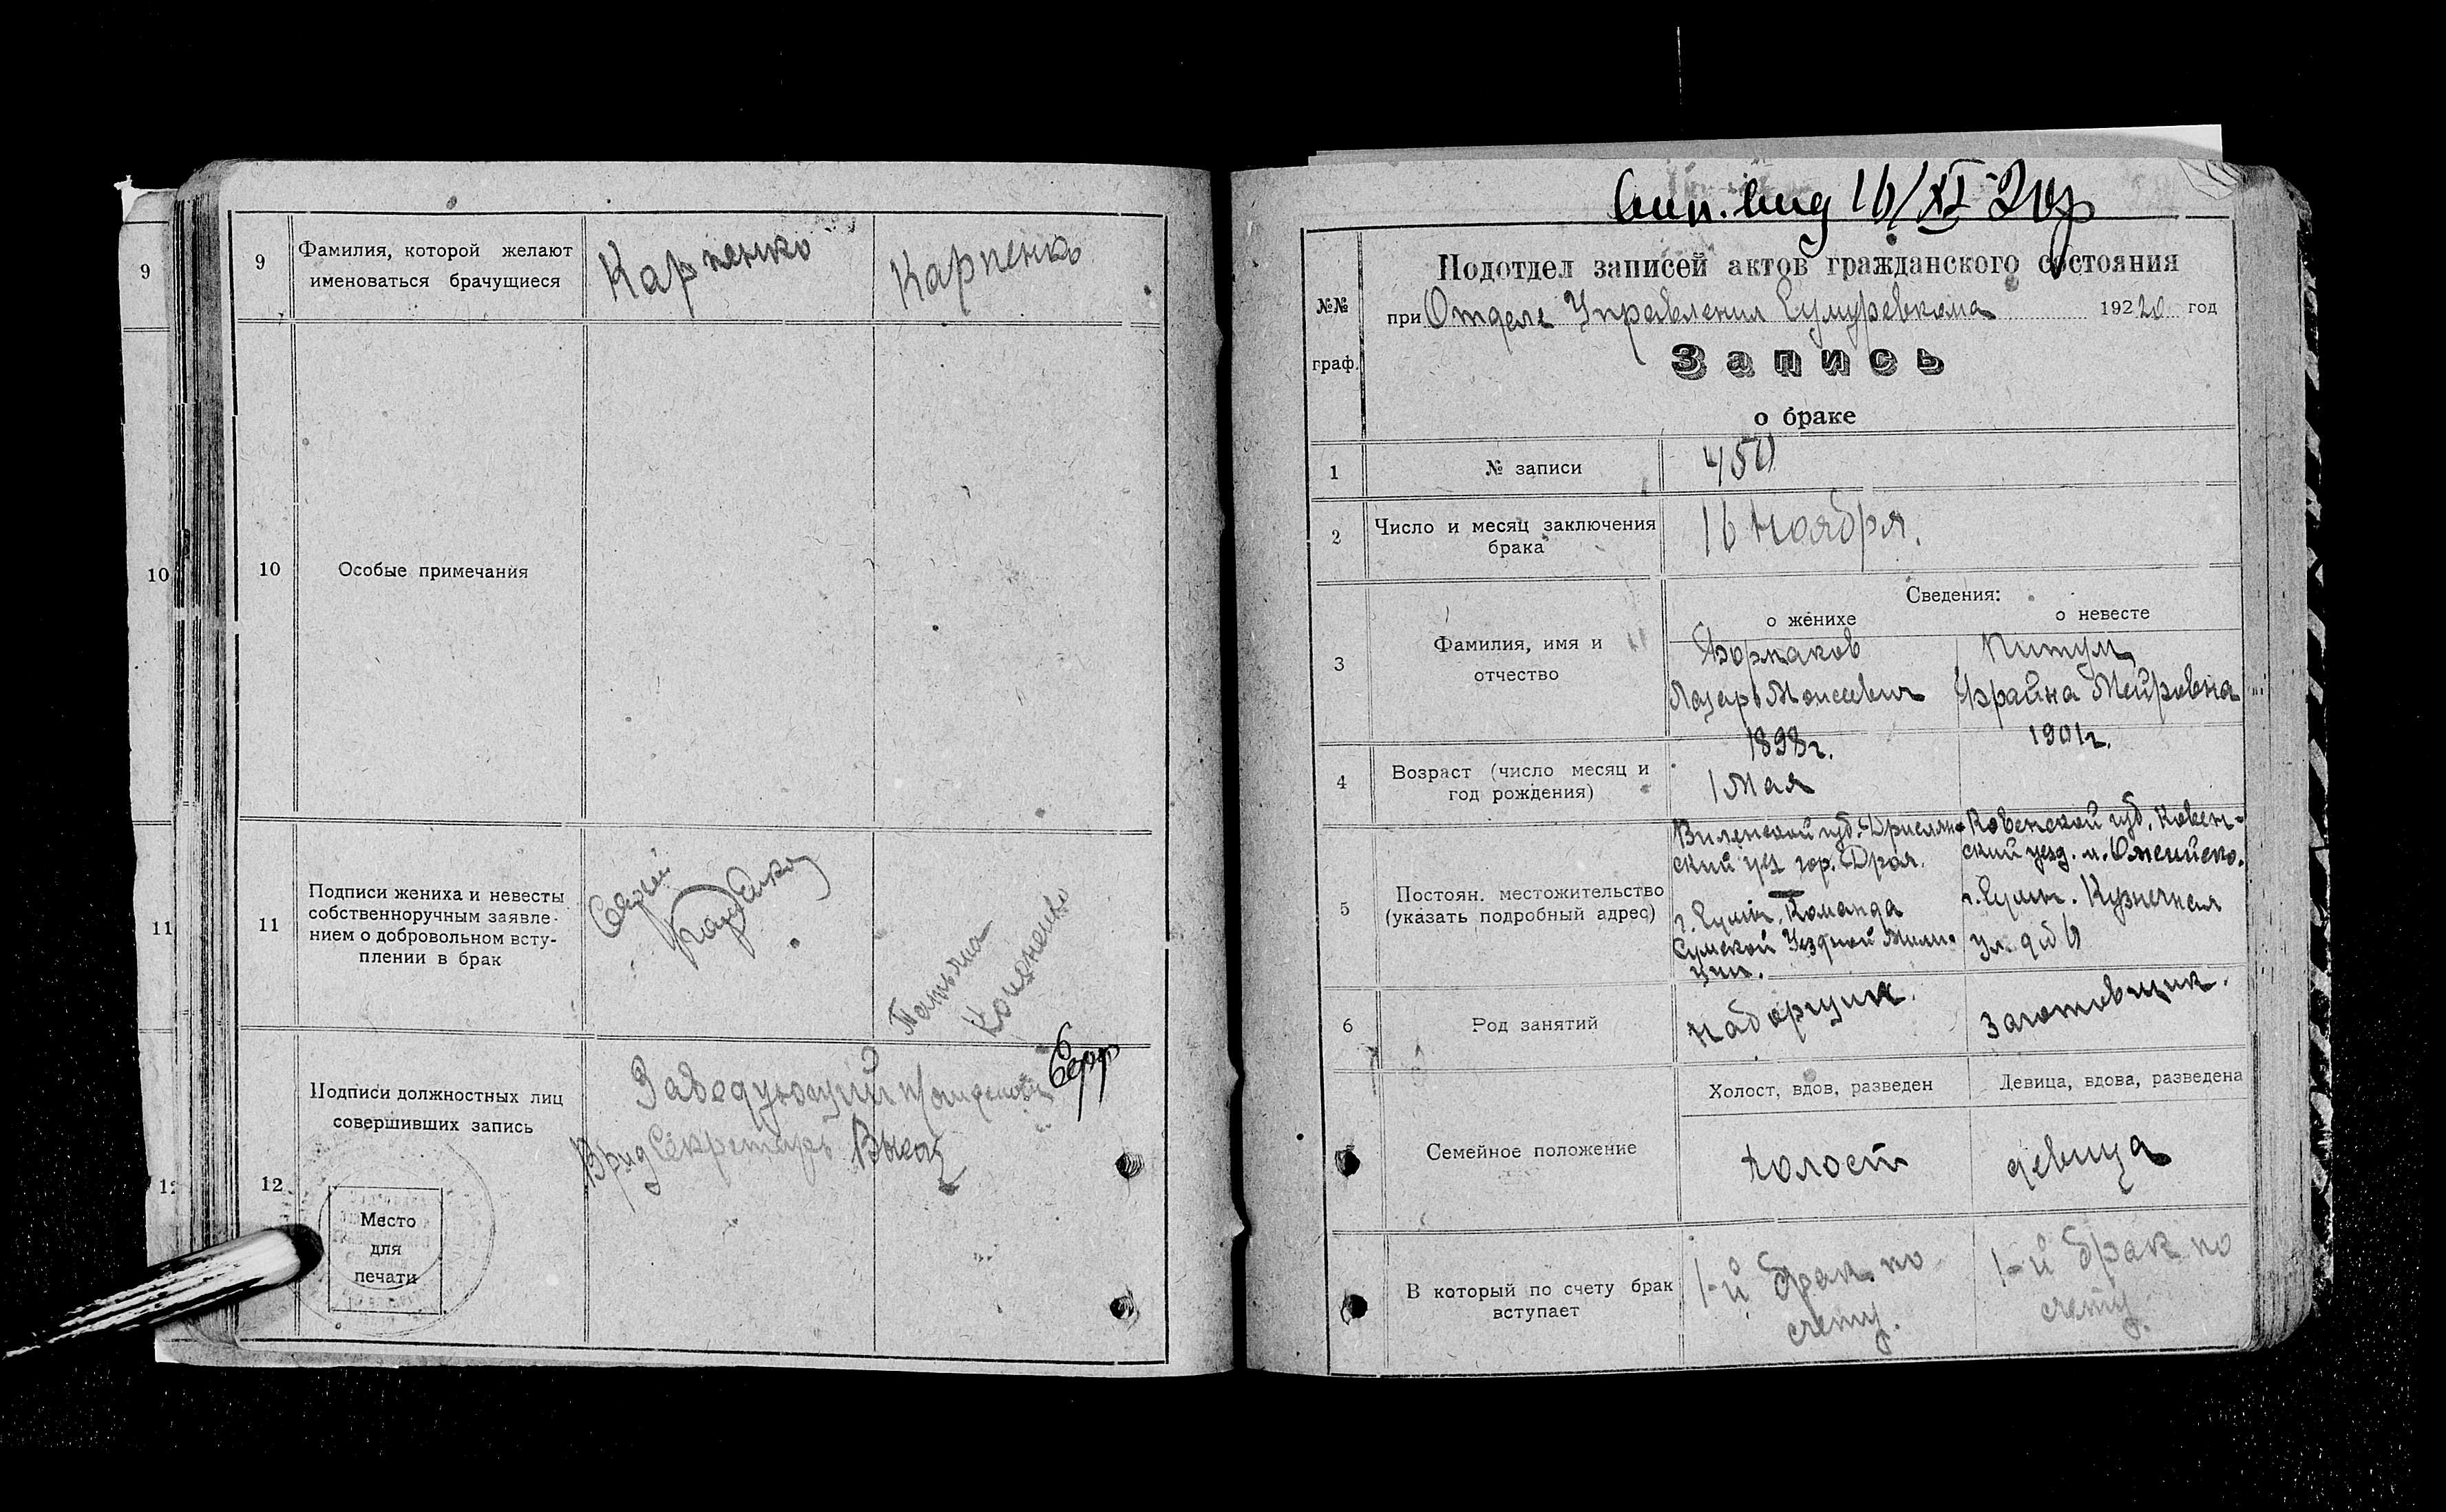 9
10
11
9
Фамилия, которой желают
именоваться брачущиеся
Карпенко
Карпенко
10
Особые примечания
11
Подписи жениха и невесты
собственноручным заявле-
нием о добровольном всту-
плении в брак
Сергей
Татьяна
12
Подписи должностных лиц
совершивших запись
Заведующий
Врид Секретарь
Место
для
печати
вид 16/XI-20г
№№
граф.
Подотдел записей актов гражданского состояния
при Отделе Управления Сумуревкома 192 20 год
Запись
о браке
1
№ записи
450
2
Число и месяц заключения
брака
16 Ноября.
3
Фамилия, имя и
отчество
Сведения:
о женихе
о невесте
Лазарь Моисеевич
Фрайна Мейровна
4
Возраст (число месяц и
год рождения)
1898г.
1 Мая
1901г.
5
Постоян. местожительство
(указать подробный адрес)
Виленской губ.
ский уез гор.
г. Сумы. Команда
Сумской Уездной Мили-
ции.
Ковенской губ. Ковен-
ский уезд. м.
г. Сумы. Кузнечная
ул. д № 6
6
Род занятий
наборщик.
заготовщик.
Холост, вдов, разведен
Девица, вдова, разведена
Семейное положение
холост
девица
В который по счету брак
вступает
1-й брак по
счету.
1-й брак по
счету.